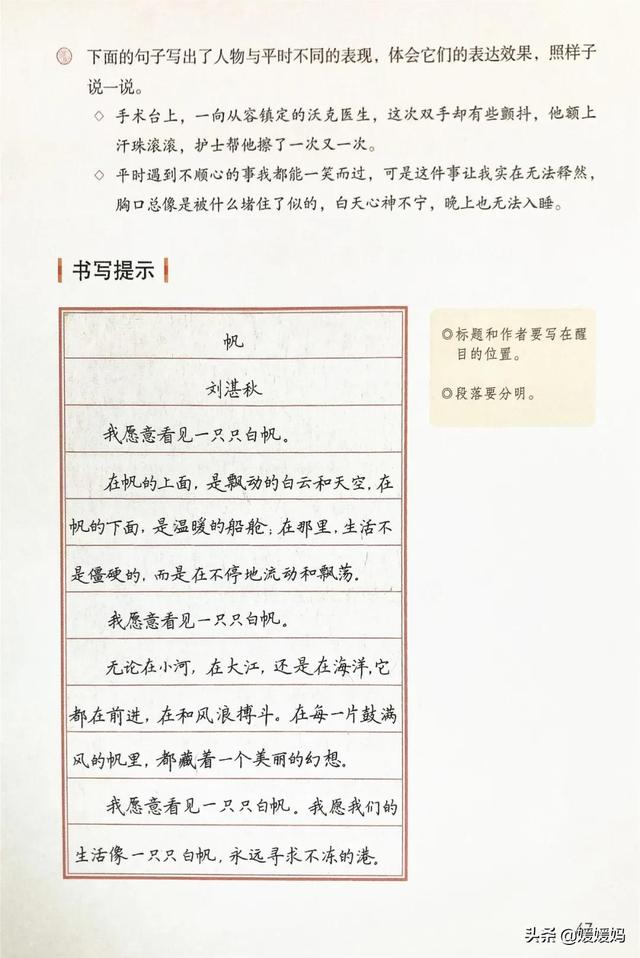 下面的句子写出了人物与平时不同的表现，体会它们的表达效果，照样子
说一说。
◇ 手术台上，一向从容镇定的沃克医生，这次双手却有些颤抖，他额上
汗珠滚滚，护士帮他擦了一次又一次。
◇ 平时遇到不顺心的事我都能一笑而过，可是这件事让我实在无法释然，
胸口总像是被什么堵住了似的，白天心神不宁，晚上也无法入睡。
书写提示
帆
刘湛秋
我愿意看见一只只白帆。
在帆的上面，是飘动的白云和天空，在
帆的下面，是温暖的船舱；在那里，生活不
是僵硬的，而是在不停地流动和飘荡。
我愿意看见一只只白帆。
无论在小河，在大江，还是在海洋，它
都在前进，在和风浪搏斗。在每一片鼓满
风的帆里，都藏着一个美丽的幻想。
我愿意看见一只只白帆。我愿我们的
生活像一只只白帆，永远寻求不冻的港。
◎标题和作者要写在醒
目的位置。
◎段落要分明。
头条 @媛媛妈